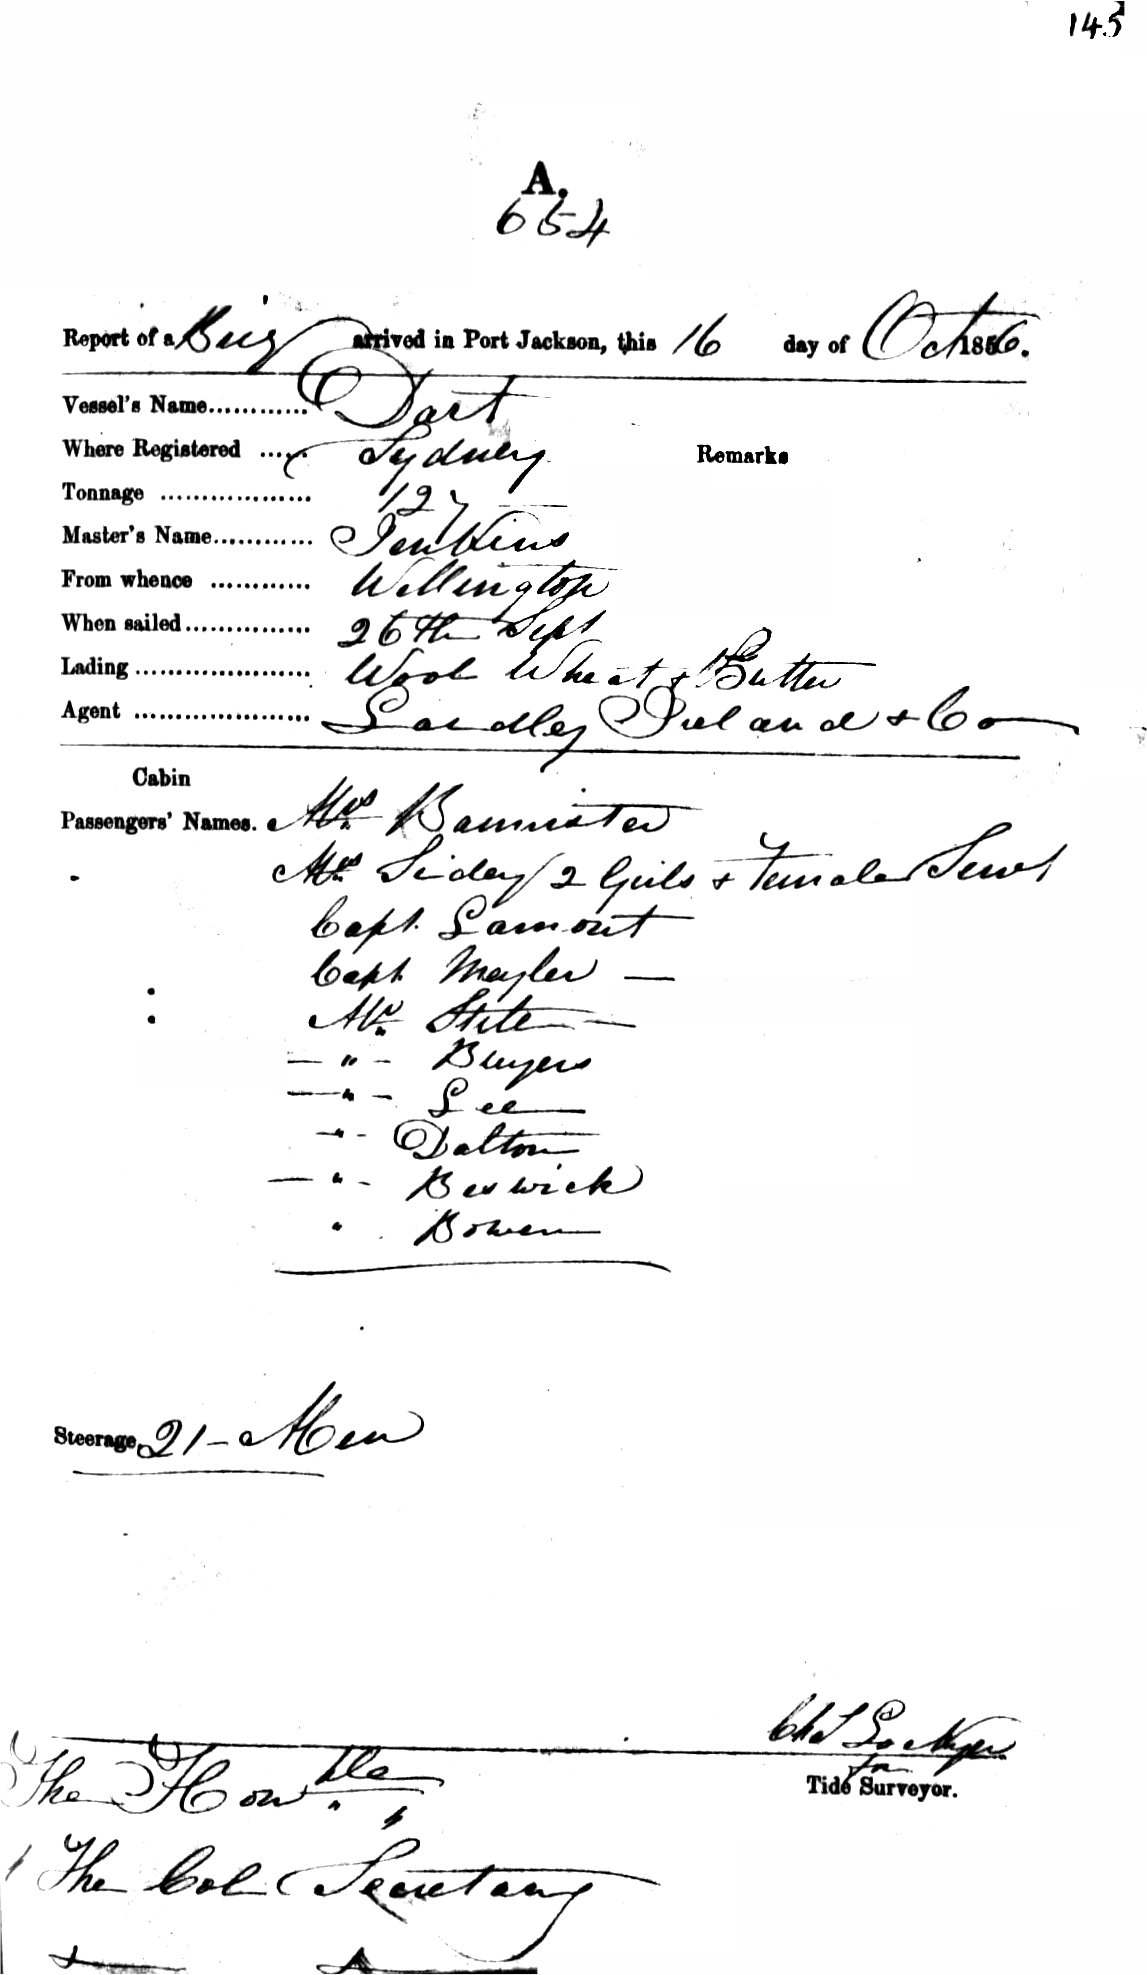 145
A.
654
Report of a Brig arrived in Port Jackson, this 16 day of Oct 1856.
Vessel's Name............ Dart
Where Registered ...... Sydney
Remarks
Tonnage .................. 127
Master's Name............ Jenkins
From whence ............ Wellington
When sailed............... 26th Sept
Lading..................... Wool Wheat & Butter
Agent ..................... Ireland & Co
Cabin
Passengers' Names. Mrs Bannister
Mrs Sidey / 2 Girls & Female Servt
Capt. Lamont
Capt. Mayler —
Mr —
— " — Buyers
— " — Lee
— " — Dalton
— " — Beswick
" Bowen
Steerage, 21 - Men
Chs Lockyer
for
Tide Surveyor.
The Honble
The Col Secretary